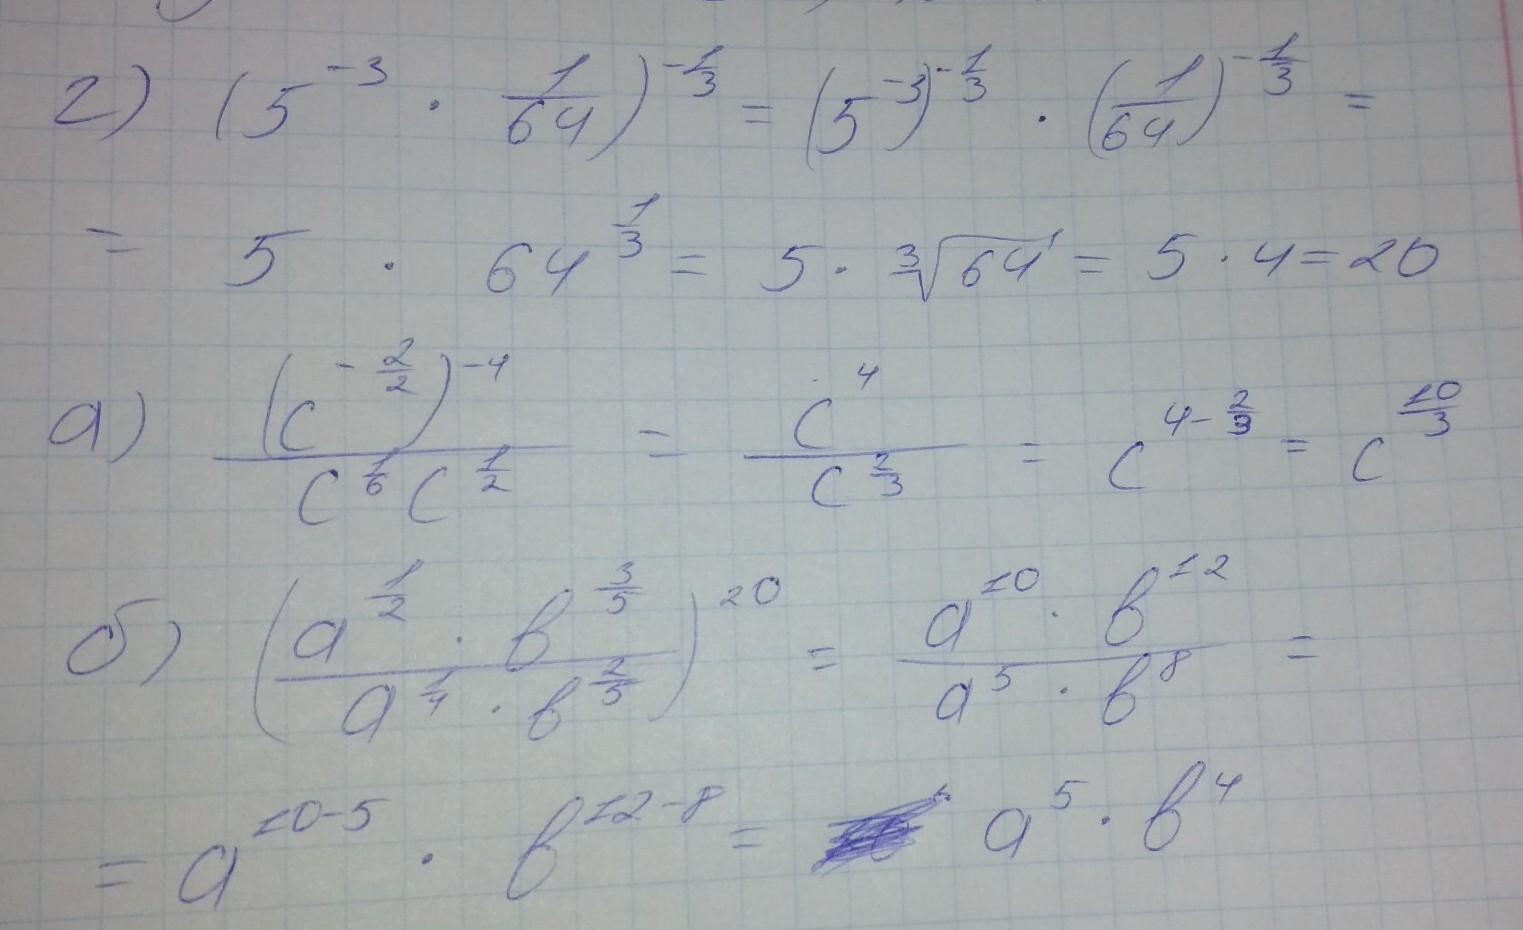 г) (5^{-3} · \frac{1}{64})^{-\frac{1}{3}} = (5^{-3})^{-\frac{1}{3}} · (\frac{1}{64})^{-\frac{1}{3}} =
= 5 · 64^{\frac{1}{3}} = 5 · \sqrt[3]{64} = 5 · 4 = 20
а) \frac{(c^{-\frac{2}{2}})^{-4}}{c^{\frac{1}{6}} c^{\frac{1}{2}}} = \frac{c^{4}}{c^{\frac{2}{3}}} = c^{4-\frac{2}{3}} = c^{\frac{10}{3}}
б) (\frac{a^{\frac{1}{2}} · b^{\frac{3}{5}}}{a^{\frac{1}{4}} · b^{\frac{2}{5}}})^{20} = \frac{a^{10} · b^{12}}{a^{5} · b^{8}} =
= a^{10-5} · b^{12-8} = a^{5} · b^{4}